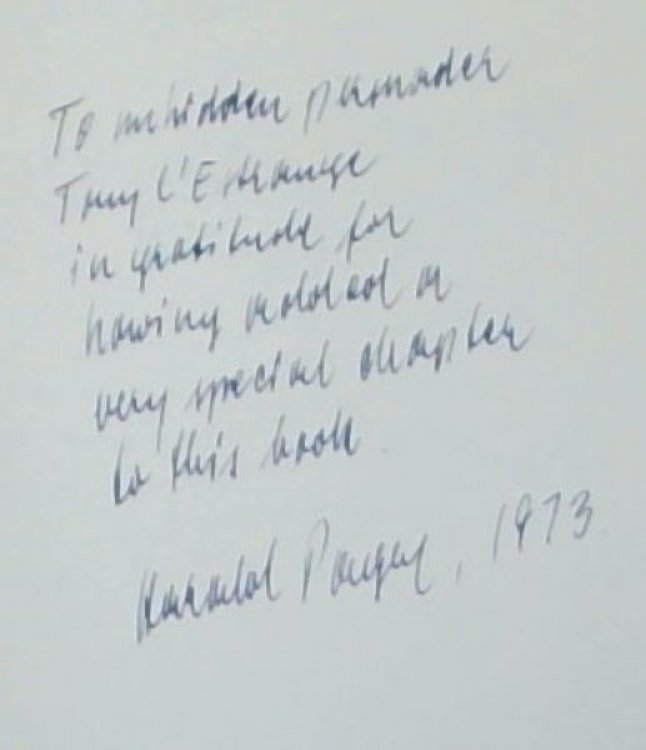 To unbidden persuader
Tony L'Estrange
in gratitude for
having added a
very special chapter
to this book
Harald Penrose, 1973